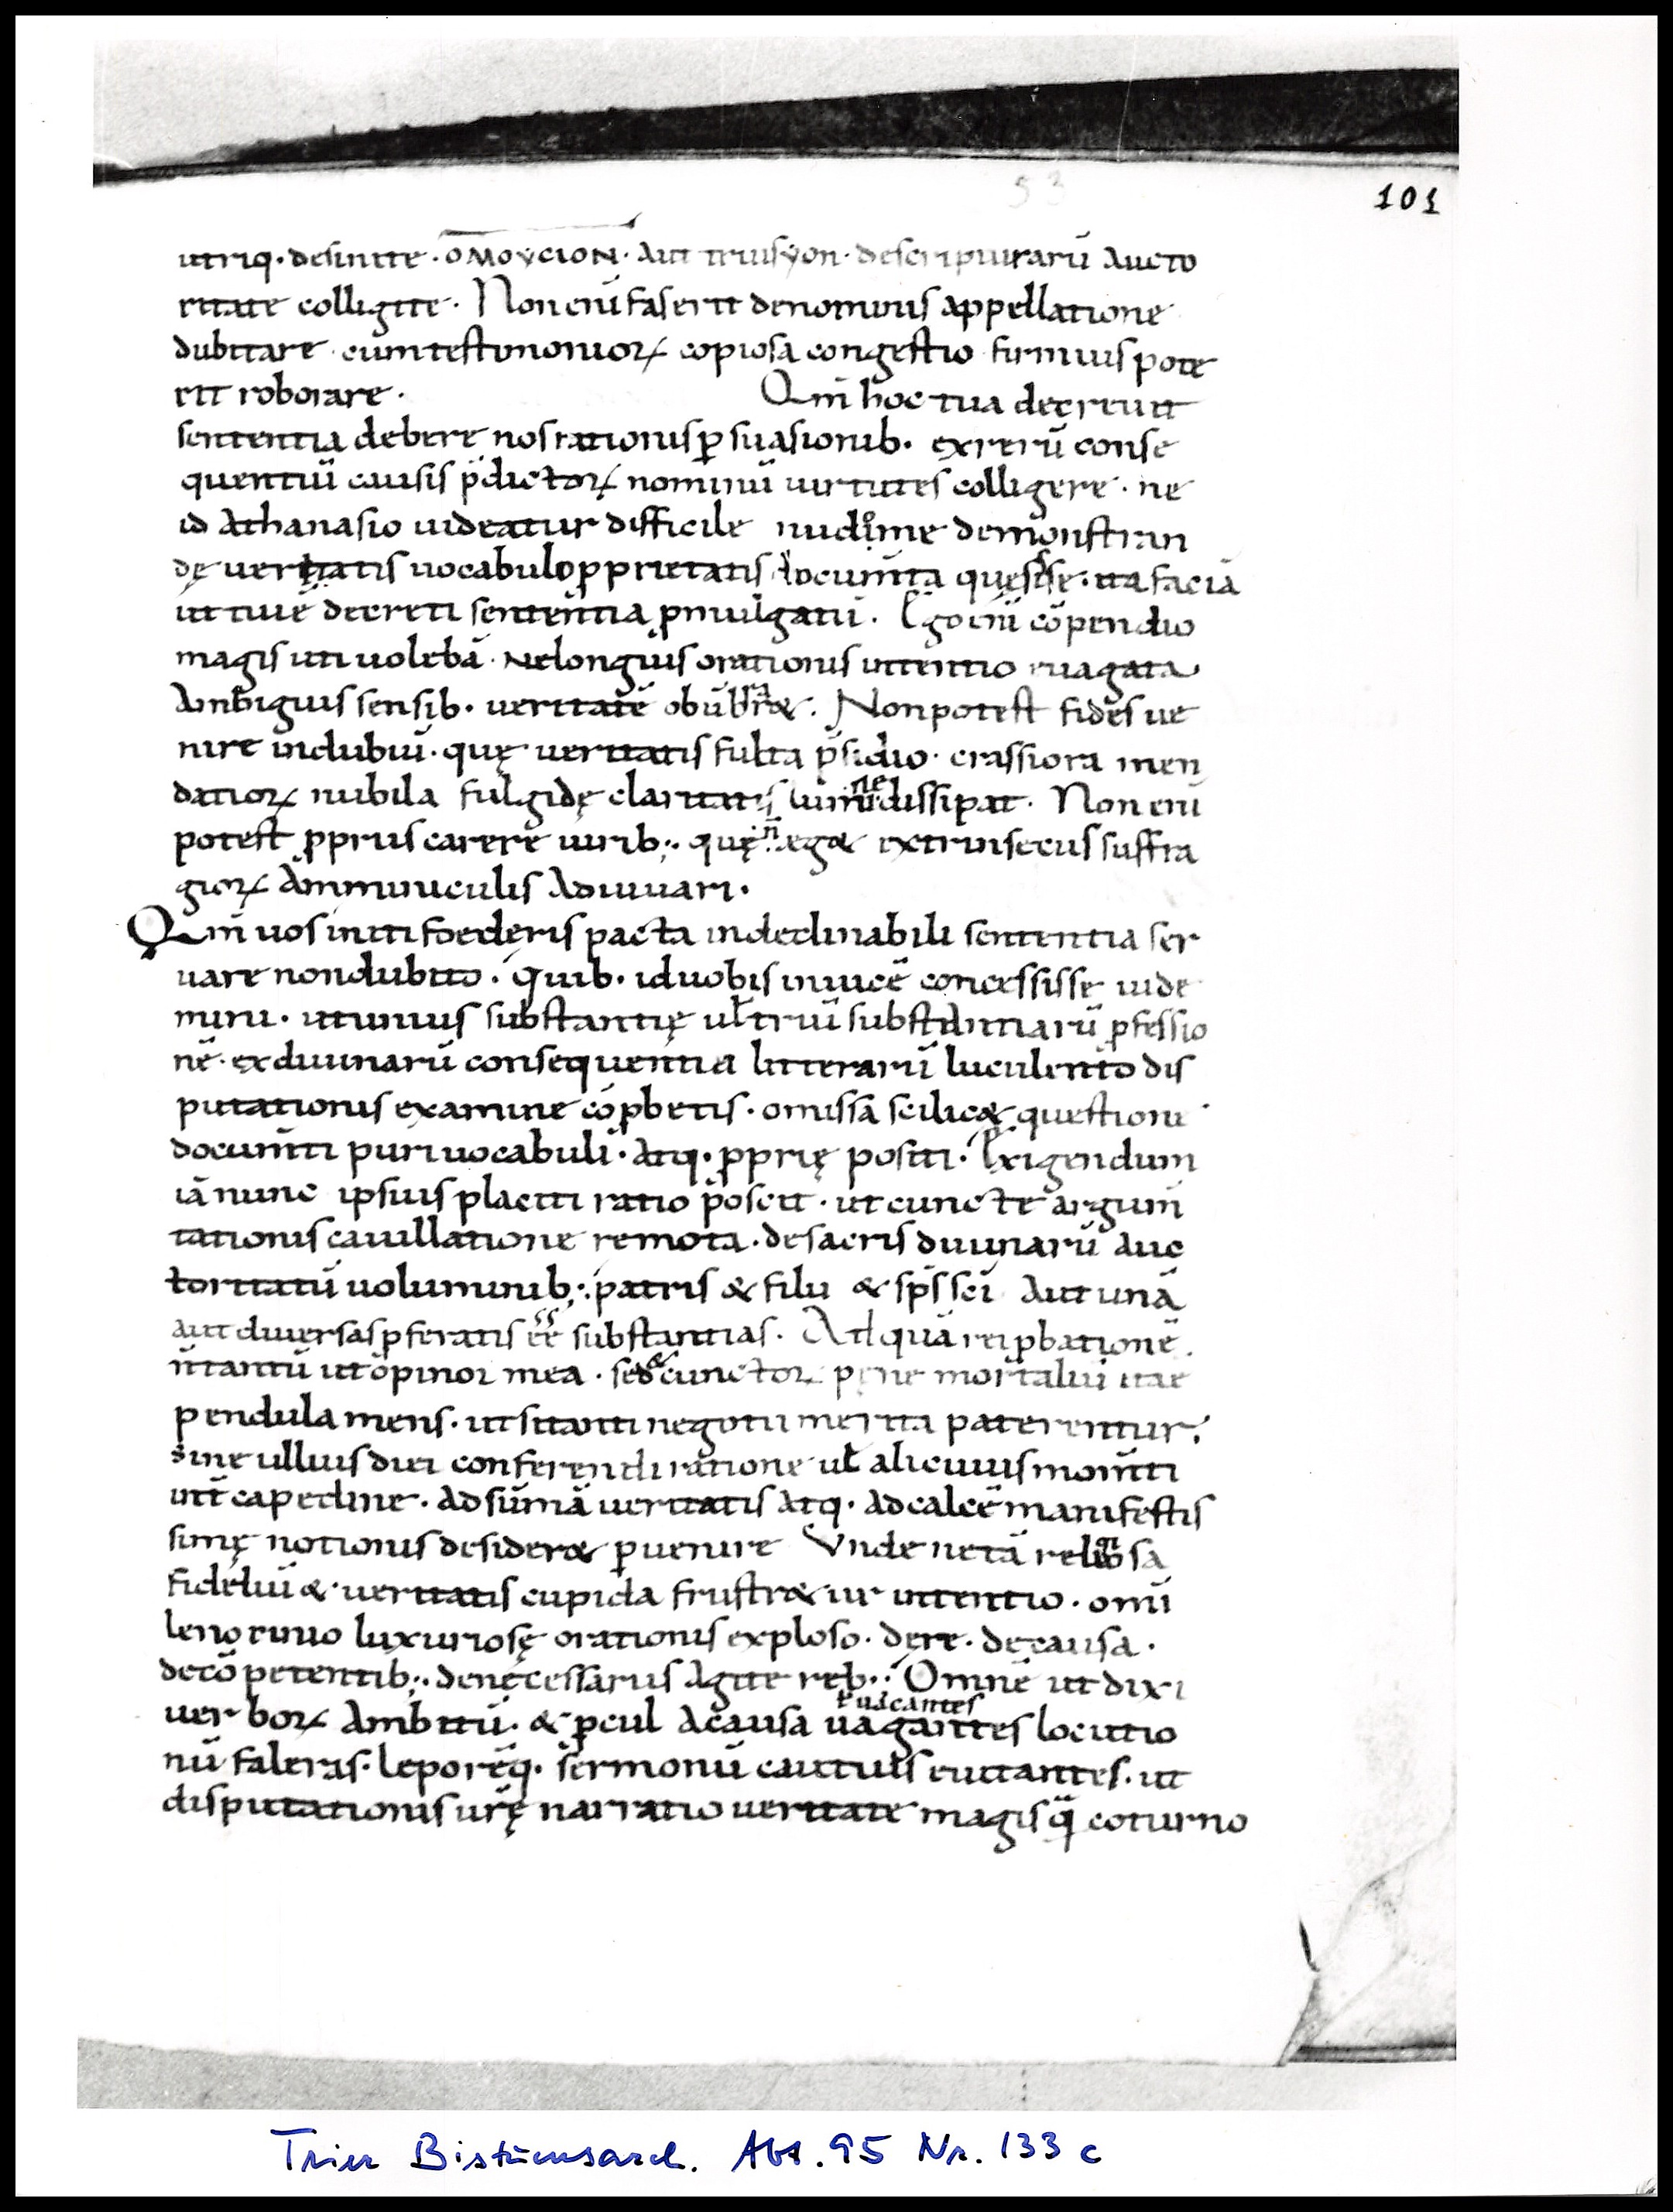 53
101
utriq· desinite · OMOYCION · aut triusyon · de scripturarū aucto
ritate colligite · Non enī fas erit de nominis appellatione
dubitare · cum testimoniorꝝ copiosa congestio firmius pote
rit roborare · Qm̄ hoc tua decreuit
sententia debere nos rationis p̱suasionib· ex rerū conse
quentiū causis p̄dictorꝝ nominū uirtutes colligere · ne
id athanasio uideatur difficile nudi me demonstran
dę ueritatis uocabulo p̱prietatis documta quęsisse · ita faciā
ut tuę decreti sententia p̱mulgauit · Ego enī cōpendio
magis uti uolebā · Ne longius orationis intentio euagata
ambiguis sensib· ueritatē obūbra& · Non potest fides ue
nire in dubiū · quę ueritatis fulta p̄sidio · crassiora men
daciorꝝ nubila fulgidę claritatis lumine dissipat · Non enī
potest p̱priis carere uirib; · quę n̄ eg& extrinsecus suffra
giorꝝ amminiculis adiuuari ·
Qm̄ uos initi foederis pacta indeclinabili sententia ser
uare non dubito · Quib· id uobis inuicē concessisse uide
mini · ut unius substantię ul̄ triū substantiarū p̱fessio
nē · ex diuinarū consequentia litterarū luculento dis
putationis examine cōp̱betis · omissa scilic& questione
documti puri uocabuli · atq· p̱prię positi · Exigendum
iā nunc ipsius placiti ratio poscit · ut cuncte argum̄
tationis cauillatione remota · de sacris diuinarū auc
toritatū uoluminib; · patris & filii & sp̄s sc̄i aut unā
aut diuersas p̱feratis ēē substantias · Ad quā rei p̱bationē
n̄ tantū ut opinor mea · sed & cunctorꝝ pęne mortaliū ita ē
pendula mens · ut si tanti negotii merita paterentur,
sine ullius diei conferendi ratione ul̄ alicuius mom̄ti
int̄capedine · ad sūmā ueritatis atq· ad calcē manifestis
simę notionis desider& p̱uenire Vnde ne tā religiosa
fideliū & ueritatis cupida frustr&ur intentio · omī
lenocinio luxuriosę orationis exploso · de re · de causa ·
de cōpetentib; · de necessariis agite reb; · Omnē ut dixi
uerborꝝ ambitū · & p̱cul a causa uagantes locutio
uacantes
nū faleras · leporēq· sermonū cautius euitantes · ut
disputationis urę narratio ueritate magis qā coturno
Trier Bistumsarch. Abt. 95 Nr. 133 c